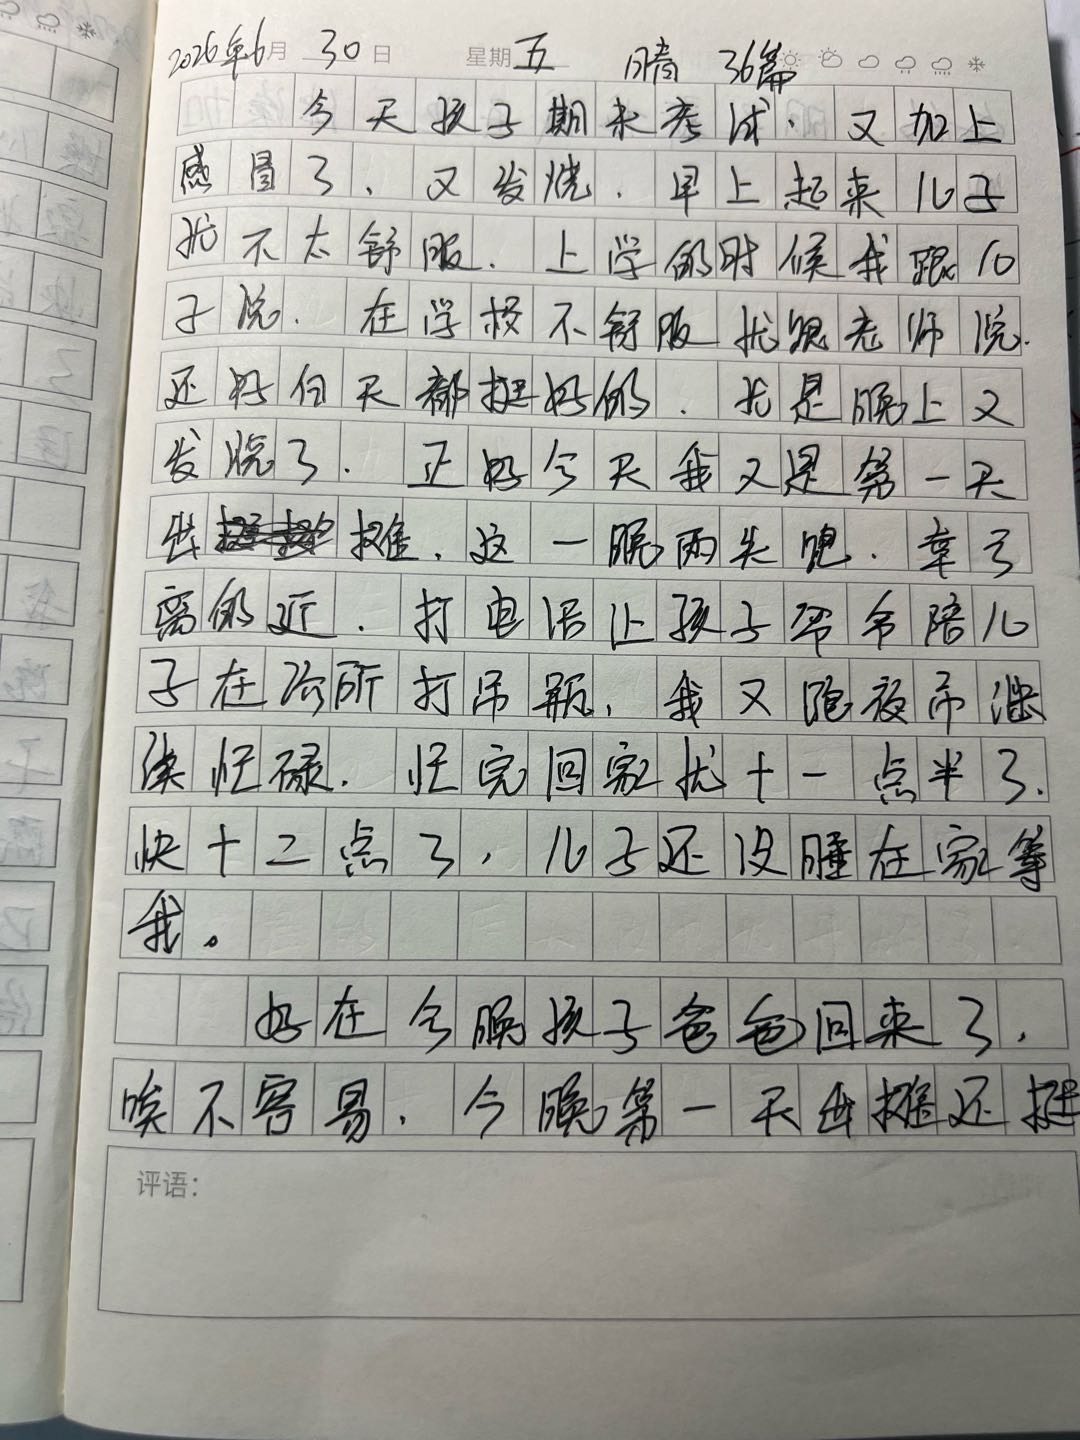 2026年6月 30日 星期五 晴 36篇
今天孩子期末考试. 又加上
感冒了、又发烧. 早上起来儿子
就不太舒服. 上学的时候我跟儿
子说. 在学校不舒服就跟老师说.
还好白天都挺好的. 尤是晚上又
发烧了. 正好今天我又是第一天
出摊. 这一晚两头跑. 幸亏
离的近. 打电话让孩子爷爷陪儿
子在诊所打吊瓶. 我又跑夜市继
续忙碌. 忙完回家就十一点半了.
快十二点了, 儿子还没睡在家等
我。
好在今晚孩子爸爸回来了.
唉不容易. 今晚第一天出摊还挺
评语: